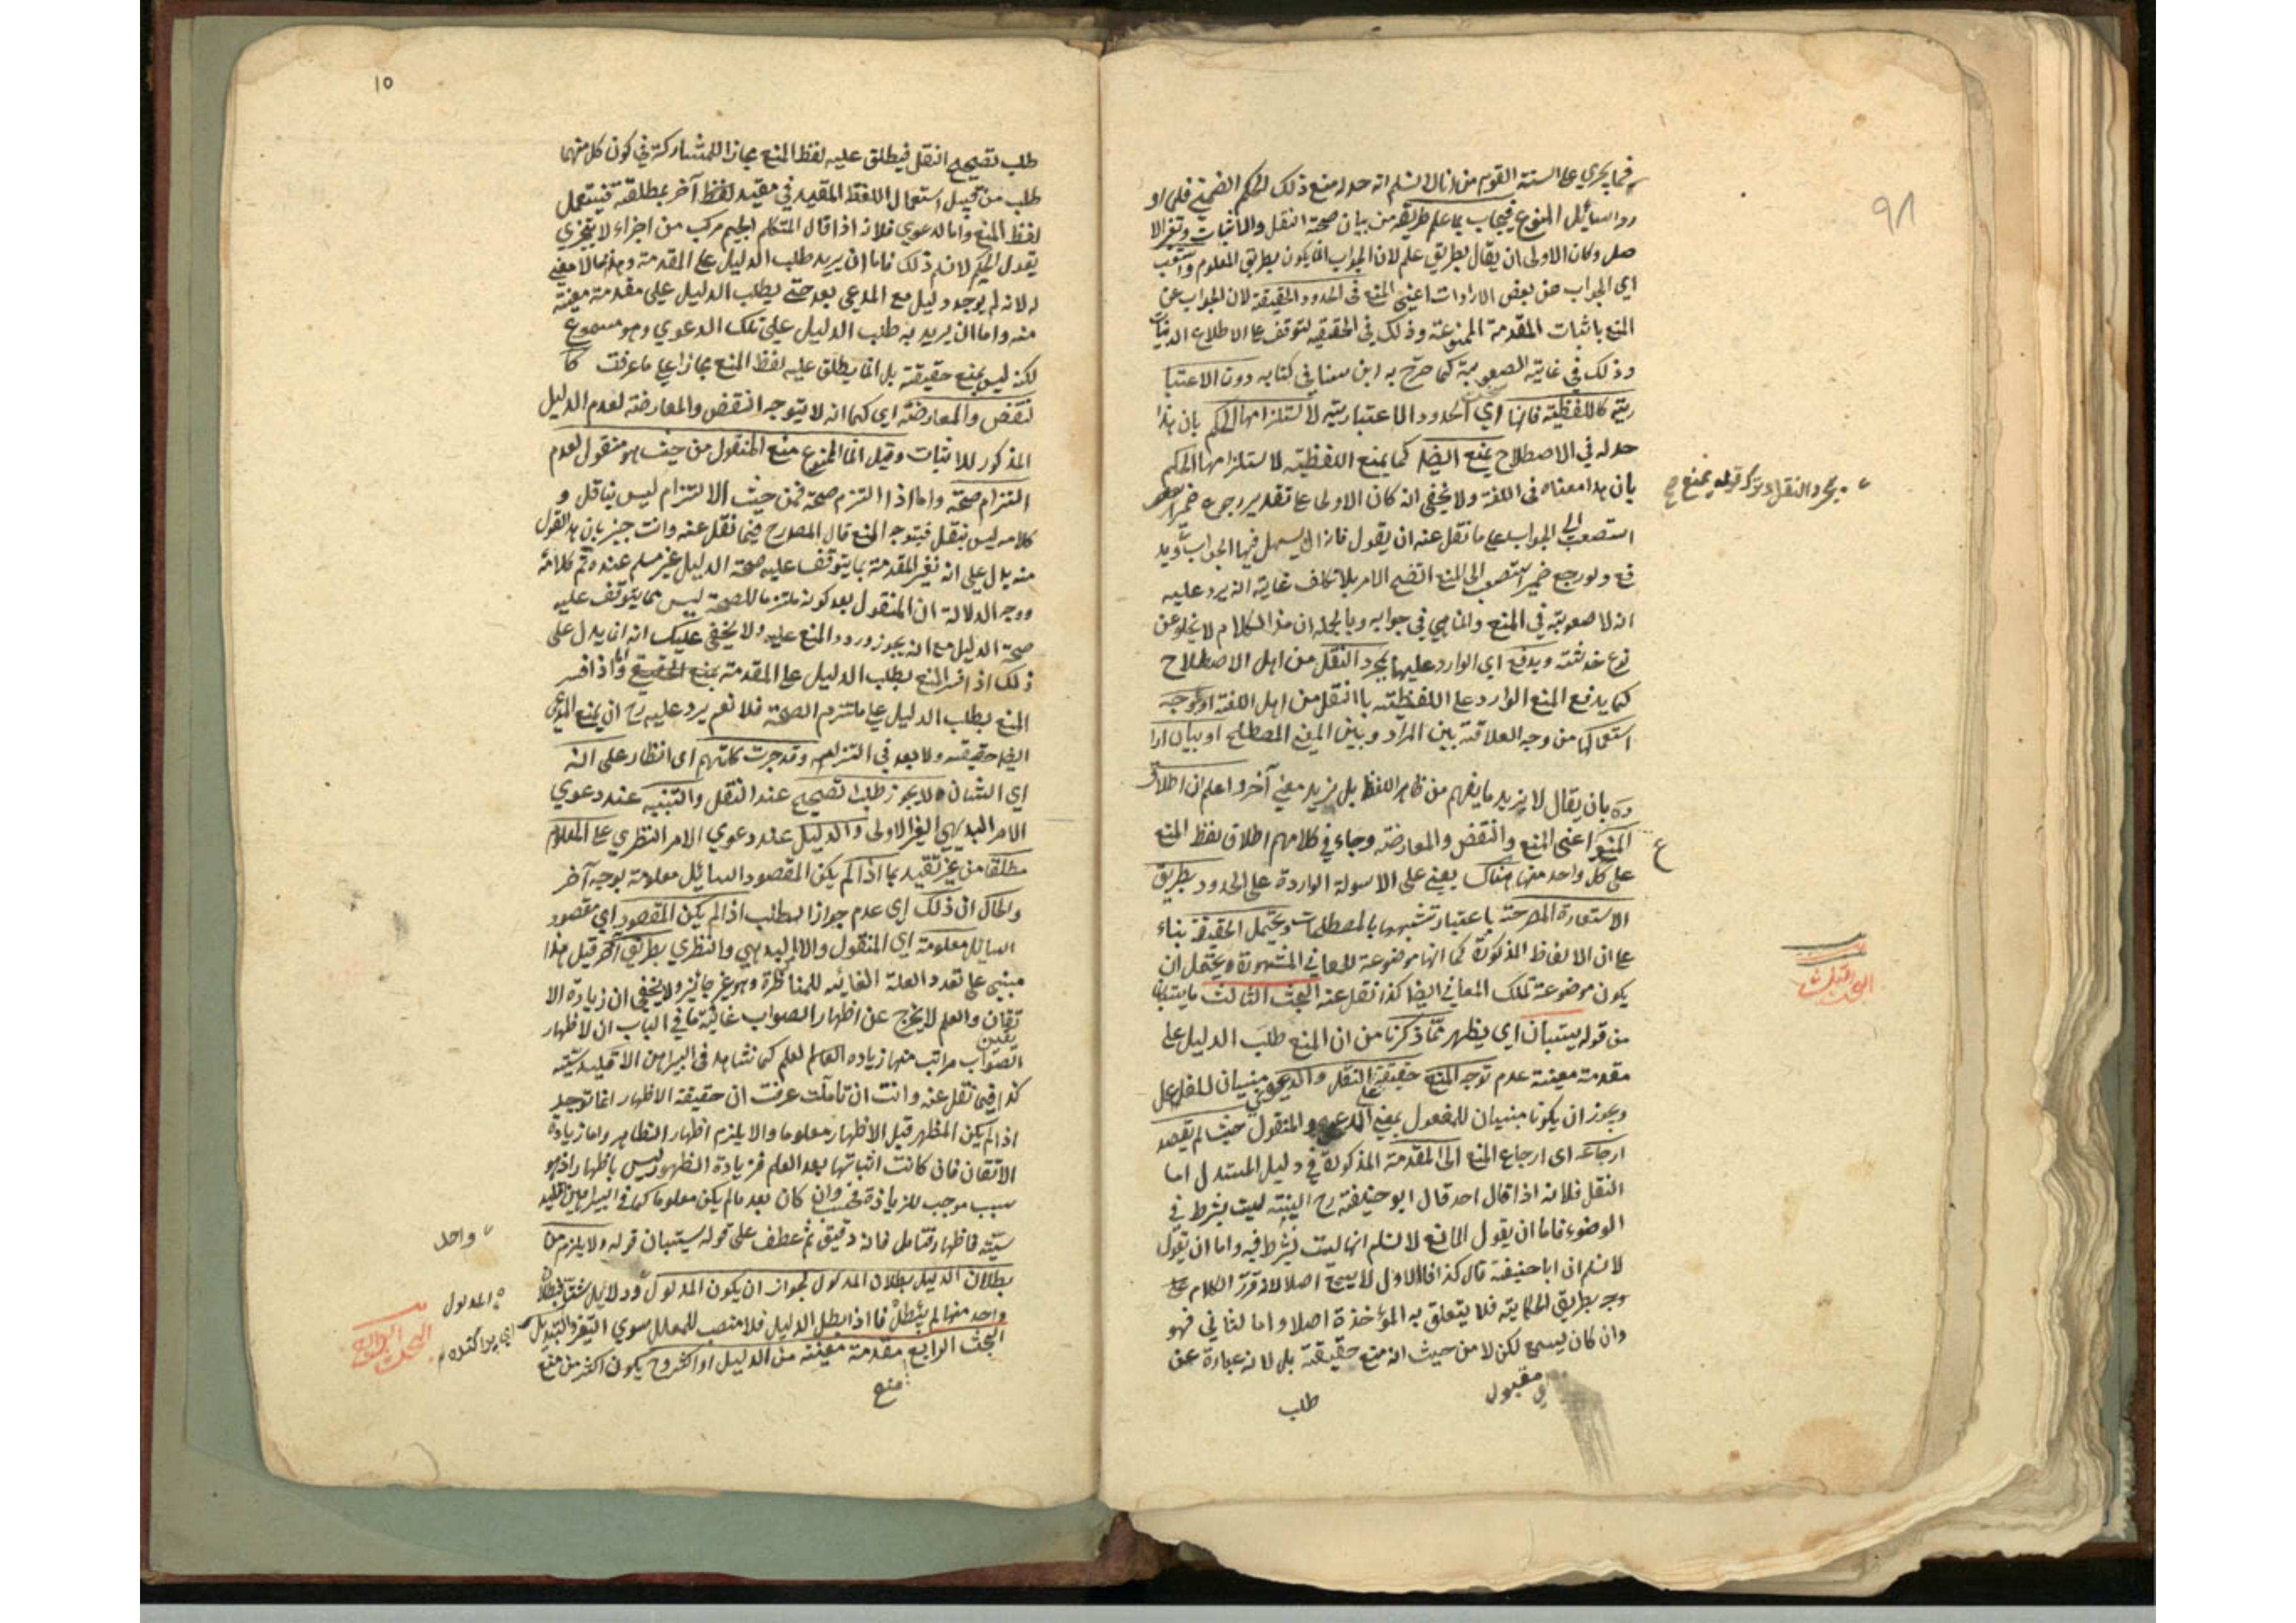 ٩٨
فما يجري على السنة القوم من انا لا نسلم انه حد له منع ذلك الحكم الضمني فلما او
رد السائل المنوع فيجاب بما علم طريقه من بيان صحة النقل والاثبات وتغير الا
صل وكان الاولى ان يقال بطريق علم لان الجواب انما يكون بطريق المعلوم واستصعب
اي الجواب عن بعض الايرادات اعني المنع في الحدود الحقيقة لان الجواب عن
المنع باثبات المقدمة الممنوعة وذلك في الحقيقية لتوقفه على الاطلاع الذاتيات
وذلك في غاية الصعوبة كما صرح به ابن سينا في كتابه دون الاعتبا
رية كاللفظية فانها اي الحدود الاعتبارية لاستلزامها الحكم بان هذا
حد له في الاصطلاح يمنع ايضا كما يمنع اللفظية لاستلزامها الحكم
بان هذا معناه في اللغة ولا يخفى انه كان الاولى على تقدير رجوع ضمير
استصعب الى الجواب على ما نقل عنه ان يقول فانه يسهل فيها الجواب ويد
فع ولو رجع ضمير استصعب الى المنع اتضح الامر بلا تكلف غايته انه يرد عليه
انه لا صعوبة في المنع وانما هي في جوابه وبالجملة ان هذا الكلام لا يخلو عن
نوع خدشة ويدفع اي الوارد عليها بمجرد النقل من اهل الاصطلاح
كما يدفع المنع الوارد على اللفظية بالنقل من اهل اللغة او بوجه
استعمالها من وجه العلاقة بين المراد وبين المعنى المصطلح او ببيان ارا
دة بان يقال لا نريد ما يفهم من ظاهر اللفظ بل نريد معنى آخر واعلم ان اطلاق
المنع اعني المنع والنقض والمعارضة وجاء في كلامهم اطلاق لفظ المنع
على كل واحد منها هناك يعني على الاسولة الواردة على الحدود بطريق
الاستعارة المصرحة باعتبار تشبيهها بالمصطلحات ويحتمل الحقيقة بناء
على ان الالفاظ المذكورة كما انها موضوعة للمعاني المشهورة ويحتمل ان
يكون موضوعة لتلك المعاني ايضا كذا نقل عنه البحث الثالث ما يستبان
من قوله يستبان اي يظهر مما ذكرنا من ان المنع طلب الدليل على
مقدمة معينة عدم توجه المنع حقيقة على النقل والدعوى مبنيان للفاعل
ويجوز ان يكونا مبنيان للمفعول بمعنى المدعى والمنقول حيث لم يقصد
ارجاعه اي ارجاع المنع الى المقدمة المذكورة في دليل المستدل اما
النقل فلانه اذا قال احد قال ابو حنيفة رح النية ليست بشرط في
الوضوء فاما ان يقول المانع لا نسلم انها ليست بشرط فيه واما ان يقول
لا نسلم ان ابا حنيفة قال كذا فالاول لا يسمع اصلا لانه قرر الكلام على
وجه بطريق الحكاية فلا يتعلق به المؤاخذة اصلا واما الثاني فهو
وان كان يسمع لكن لا من حيث انه منع حقيقة بل لانه عبارة عن
اي مقبول
طلب
بمجرد النقل
البحث الثالث
١٥
طلب تصحيح النقل فيطلق عليه لفظ المنع مجازا للمشاركة في كون كل منهما
طلب من قبيل استعمال اللفظ المقيد في مقيد لفظ آخر بمطلقة فيستعمل
لفظ المنع واما الدعوى فلانه اذا قال المتكلم الجسم مركب من اجزاء لا يتجزى
يقول الحكيم لا نسلم ذلك فاما ان يريد طلب الدليل على المقدمة وهذا مما لا معنى
له لانه لم يوجد دليل مع المدعي بعد حتى يطلب الدليل على مقدمة معينة
منه واما ان يريد به طلب الدليل على تلك الدعوى وهو مسموع
لكنه ليس بمنع حقيقة بل انما يطلق عليه لفظ المنع مجازا على ما عرفت كا
لنقض والمعارضة اي كما انه لا يتوجه النقض والمعارضة لعدم الدليل
المذكور للاثبات وقيل انما الممنوع منع المنقول من حيث هو منقول لعدم
التزام صحته واما اذا التزم صحة فمن حيث الالتزام ليس بناقل و
كلامه ليس بنقل فيتوجه المنع قال المص رح فيما نقل عنه وانت خبير بان هذا القول
منه يدل على انه تفسير المقدمة بما يتوقف عليه صحة الدليل غير مسلم عنده تم كلامه
ووجه الدلالة ان المنقول بعد كونه ملتزما للصحة ليس مما يتوقف عليه
صحة الدليل مع انه يجوز ورود المنع عليه ولا يخفى عليك انه انما يدل على
ذلك اذا فسر المنع بطلب الدليل على المقدمة واما اذا فسر
المنع بطلب الدليل على ملتزم الصحة فلا نعم يرد عليه رح ان يمنع المدعى
ايضا حقيقة ولا بعد في التزامه وقد جرت كلمتهم اي انظار على انه
اي الشان لا يجوز طلب تصحيح عند النقل والتنبيه عند دعوى
الامر البديهي الغير الاولى والدليل عند دعوى الامر النظري على المعلوم
مطلقا من غير تقييد بما اذا لم يكن المقصود السائل معلومة بوجه آخر
والحال ان ذلك اي عدم جواز الطلب اذا لم يكن المقصود اي مقصود
السائل معلومة اي المنقول والا البديهي والنظري بطريق آخر قيل هذا
مبني على تعدد العلة الغائية للمناظرة وهو غير جائز ولا يخفى ان زيادة الا
تقان والعلم لا يخرج عن اظهار الصواب غاية ما في الباب ان لاظهار
يقين
الصواب مراتب منها زيادة العالم لعلم كما نشاهد في البراهين الاقليدسية
كذا في نقل عنه وانت ان تاملت عرفت ان حقيقة الاظهار انما توجد
اذا لم يكن المظهر قبل الاظهار معلوما والا يلزم اظهار الظاهر واما زيادة
الاتقان فان كانت اثباتها بعد العلم فزيادة الظهور ليس باظهار اذ هو
سبب موجب للزيادة فحسب وان كان بعد ما لم يكن معلوما كما في البراهين اقليد
سية فاظهار فتامل فانه دقيق ثم عطف على قوله يستبان قوله ولا يلزم من
بطلان الدليل بطلان المدلول لجواز ان يكون المدلول ودلائل شتى فبطلان
واحد منها لم يبطل فاذا بطل الدليل فلا منصب للمعلل سوى التغير والتبديل
البحث الرابع مقدمة معينة من الدليل او اكثر وح يكون اكثر من منع
منع
واحد
المدلول
البحث الرابع